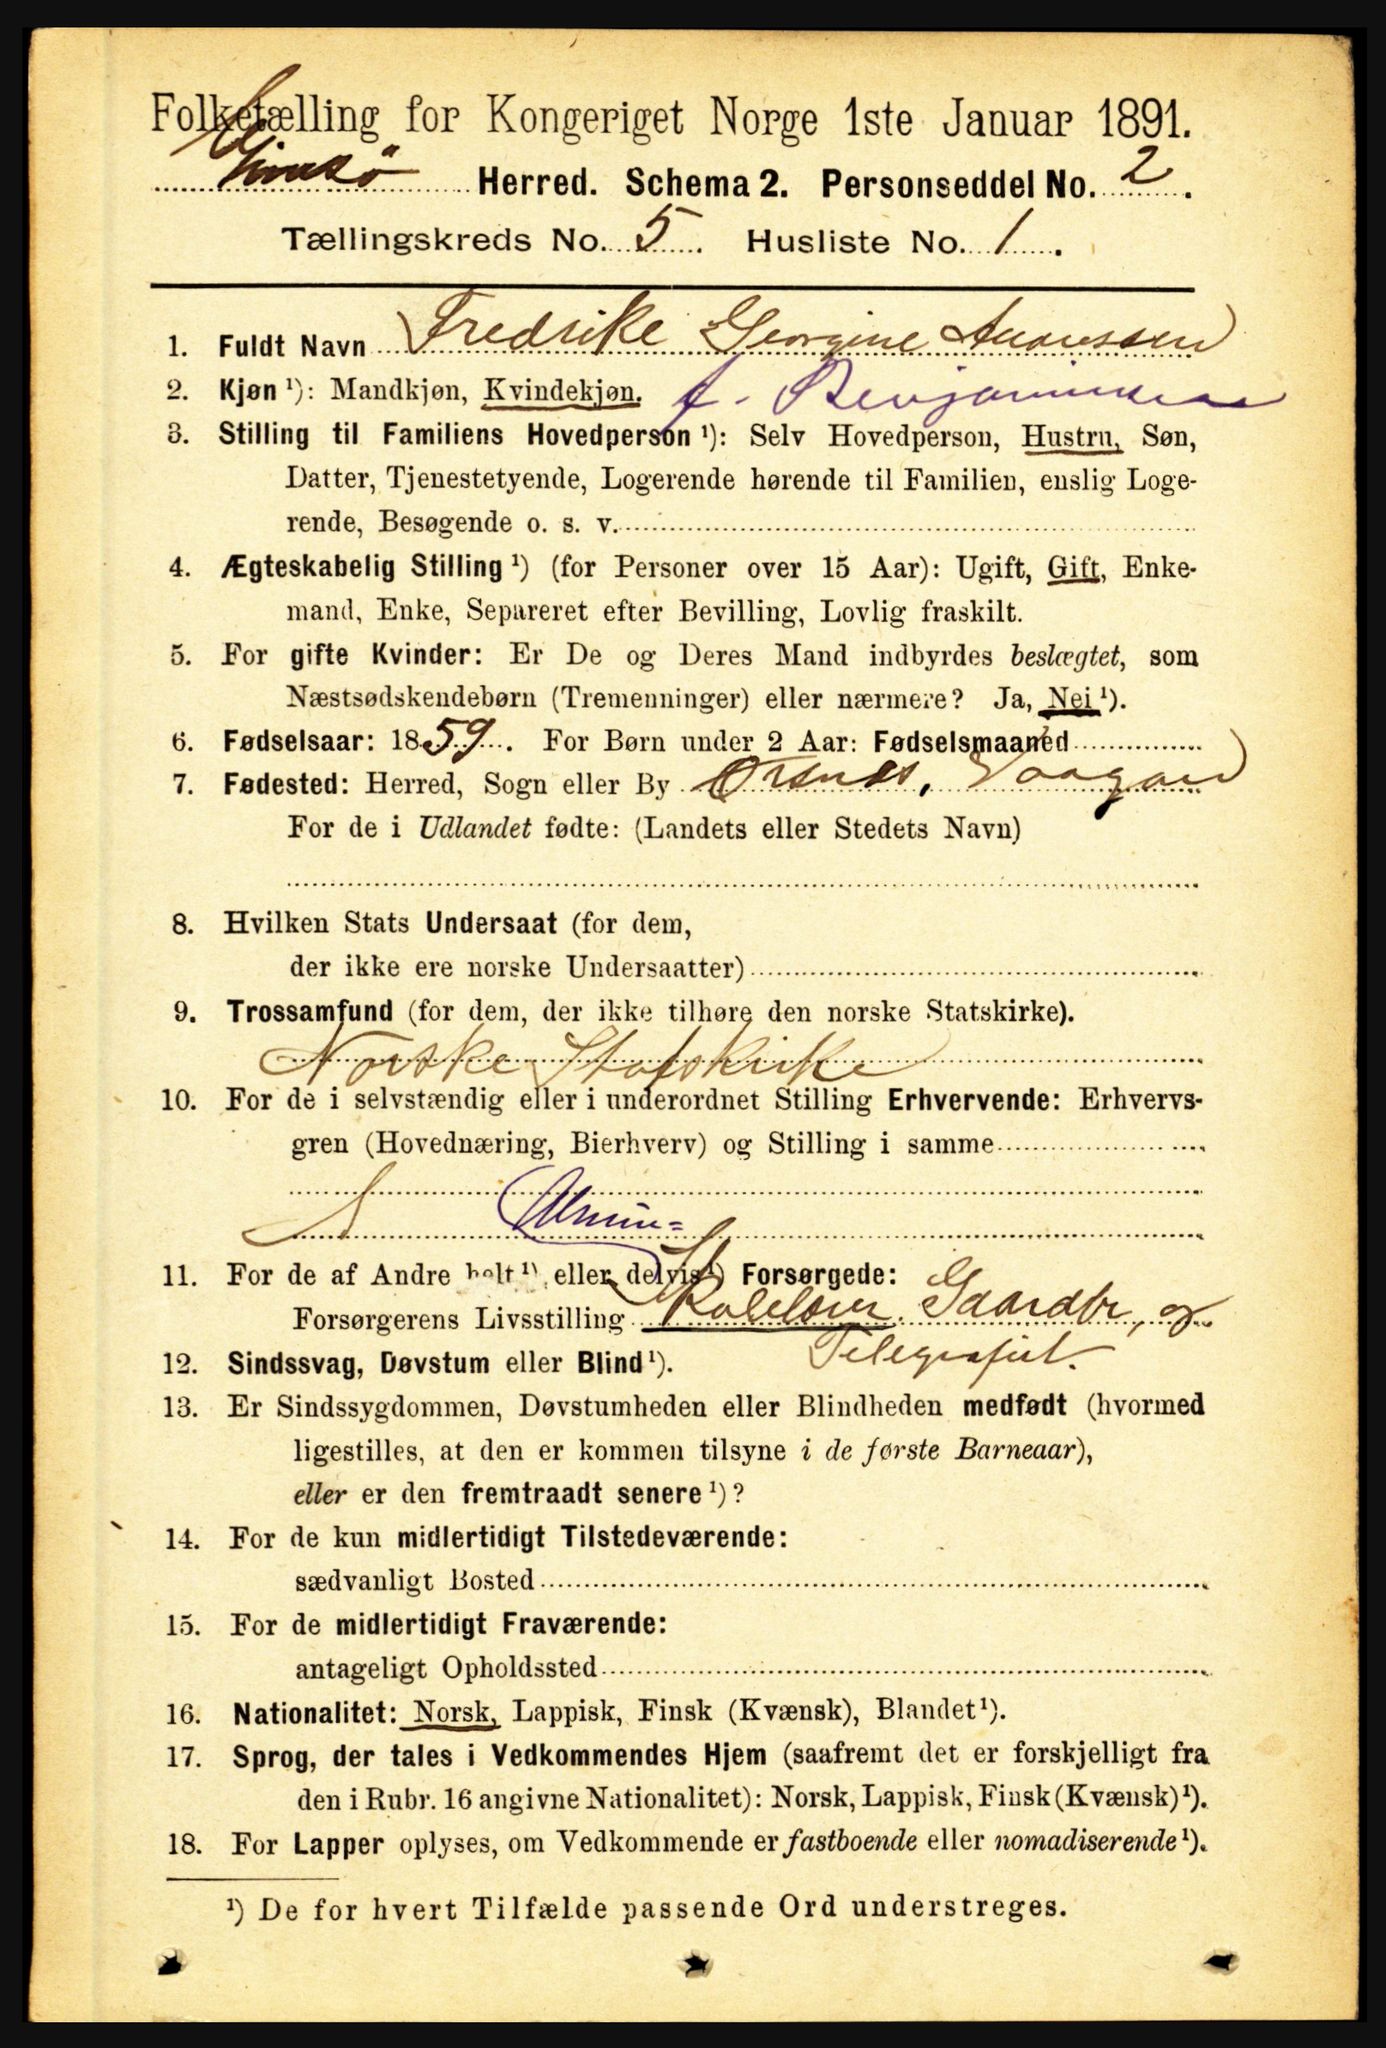 Folketælling for Kongeriget Norge 1ste Januar 1891.
Gimsø Herred. Schema 2. Personseddel No. 2.
Tællingskreds No. 5. Husliste No. 1.
1. Fuldt Navn Fredrike Georgine
2. Kjøn ¹): Mandkjøn, Kvindekjøn. f. Benjaminsen
3. Stilling til Familiens Hovedperson ¹): Selv Hovedperson, Hustru, Søn,
Datter, Tjenestetyende, Logerende hørende til Familien, enslig Loge-
rende, Besøgende o. s. v.
4. Ægteskabelig Stilling ¹) (for Personer over 15 Aar): Ugift, Gift, Enke-
mand, Enke, Separeret efter Bevilling, Lovlig fraskilt.
5. For gifte Kvinder: Er De og Deres Mand indbyrdes beslægtet, som
Næstsødskendebørn (Tremenninger) eller nærmere? Ja, Nei ¹).
6. Fødselsaar: 1859. For Børn under 2 Aar: Fødselsmaaned
7. Fødested: Herred, Sogn eller By Ørsnes, Vaagan
For de i Udlandet fødte: (Landets eller Stedets Navn)
8. Hvilken Stats Undersaat (for dem,
der ikke ere norske Undersaatter)
9. Trossamfund (for dem, der ikke tilhøre den norske Statskirke).
Norske Statskirke
10. For de i selvstændig eller i underordnet Stilling Erhvervende: Erhvervs-
gren (Hovednæring, Bierhverv) og Stilling i samme
Almue=
11. For de af Andre helt ¹) eller delvis ¹) Forsørgede:
Forsørgerens Livsstilling Skolelærer. Gaardbr, og
12. Sindssvag, Døvstum eller Blind ¹). Telegrafist.
13. Er Sindssygdommen, Døvstumheden eller Blindheden medfødt (hvormed
ligestilles, at den er kommen tilsyne i de første Barneaar),
eller er den fremtraadt senere ¹)?
14. For de kun midlertidigt Tilstedeværende:
sædvanligt Bosted
15. For de midlertidigt Fraværende:
antageligt Opholdssted
16. Nationalitet: Norsk, Lappisk, Finsk (Kvænsk), Blandet ¹).
17. Sprog, der tales i Vedkommendes Hjem (saafremt det er forskjelligt fra
den i Rubr. 16 angivne Nationalitet): Norsk, Lappisk, Finsk (Kvænsk) ¹).
18. For Lapper oplyses, om Vedkommende er fastboende eller nomadiserende ¹).
¹) De for hvert Tilfælde passende Ord understreges.